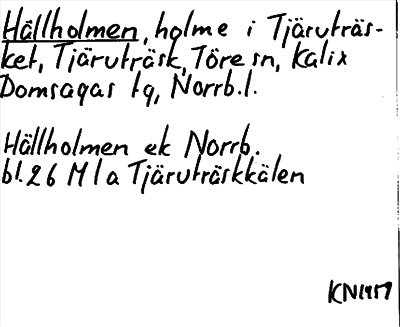 Hällholmen, holme i Tjäruträs-
ket, Tjäruträsk, Töre sn, Kalix
Domsagas tg, Norrb.l.
Hällholmen ek Norrb.
bl.26 M1a Tjäruträskkälen
KN1957